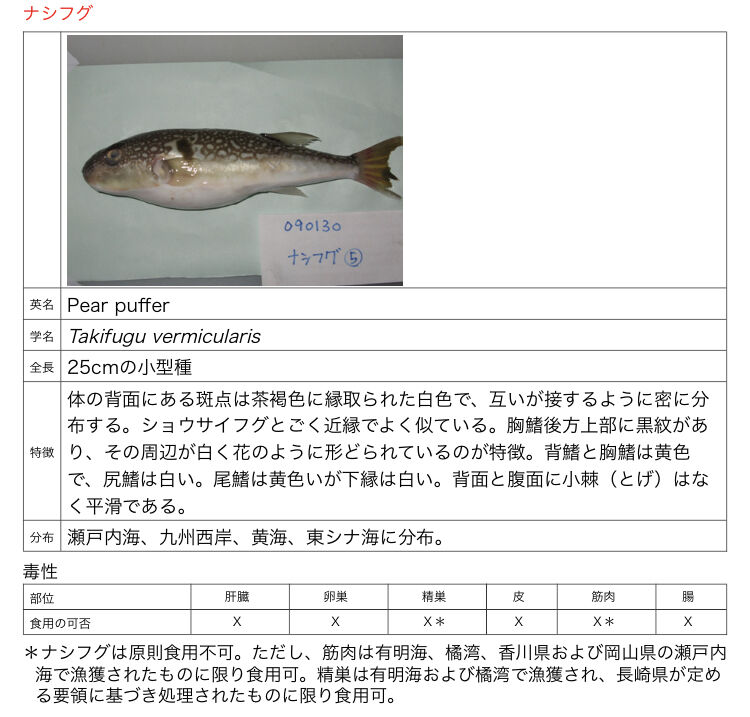 ナシフグ
090130
ナシフグ⑤
英名 Pear puffer
学名 Takifugu vermicularis
全長 25cmの小型種
特徴 体の背面にある斑点は茶褐色に縁取られた白色で、互いが接するように密に分
布する。ショウサイフグとごく近縁でよく似ている。胸鰭後方上部に黒紋があ
り、その周辺が白く花のように形どられているのが特徴。背鰭と胸鰭は黄色
で、尻鰭は白い。尾鰭は黄色いが下縁は白い。背面と腹面に小棘（とげ）はな
く平滑である。
分布 瀬戸内海、九州西岸、黄海、東シナ海に分布。
毒性
部位 肝臓 卵巣 精巣 皮 筋肉 腸
食用の可否 X X X＊ X X＊ X
＊ナシフグは原則食用不可。ただし、筋肉は有明海、橘湾、香川県および岡山県の瀬戸内
海で漁獲されたものに限り食用可。精巣は有明海および橘湾で漁獲され、長崎県が定め
る要領に基づき処理されたものに限り食用可。